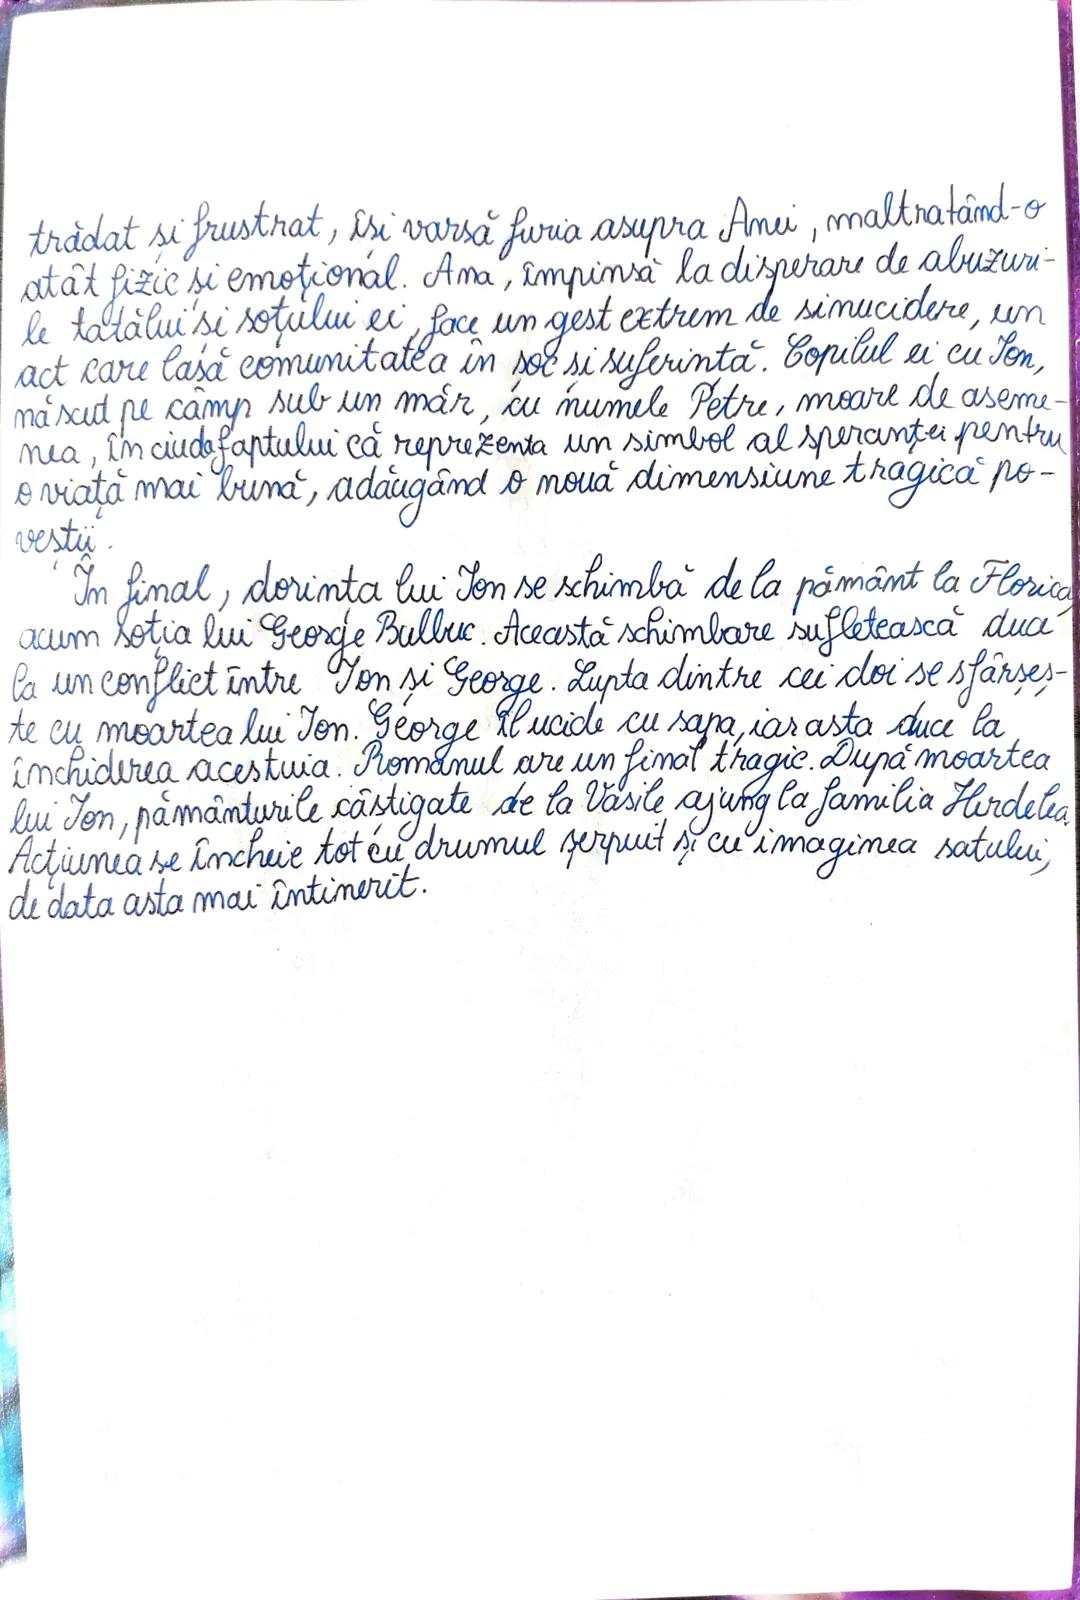 trădat și frustrat, își varsă furia asupra Anei, maltratând-o
atât fizic și emoțional. Ana, împinsă la disperare de abuzuri-
le tatălui și soțului ei, face un gest extrem de simucidere, un
act care lasă comunitatea în șoc și suferință. Copilul ei cu Ion,
născut pe câmp sub un măr, cu numele Petre, moare de aseme-
nea, în ciuda faptului că reprezenta un simbol al speranței pentru
o viață mai bună, adăugând o nouă dimensiune tragică po-
vestii.
În final, dorința lui Ion se schimbă de la pământ la Florica,
acum soția lui George Bulbuc. Această schimbare sufletească duce
la un conflict între Ion și George. Lupta dintre cei doi se sfârșeș-
te cu moartea lui Ion. George îl ucide cu sapa, iar asta duce la
închiderea acestuia. Romanul are un final tragic. După moartea
lui Ion, pământurile câștigate de la Vasile ajung la familia Herdelea.
Acțiunea se încheie tot cu drumul șerpuit și cu imaginea satului,
de data asta mai întinerit.